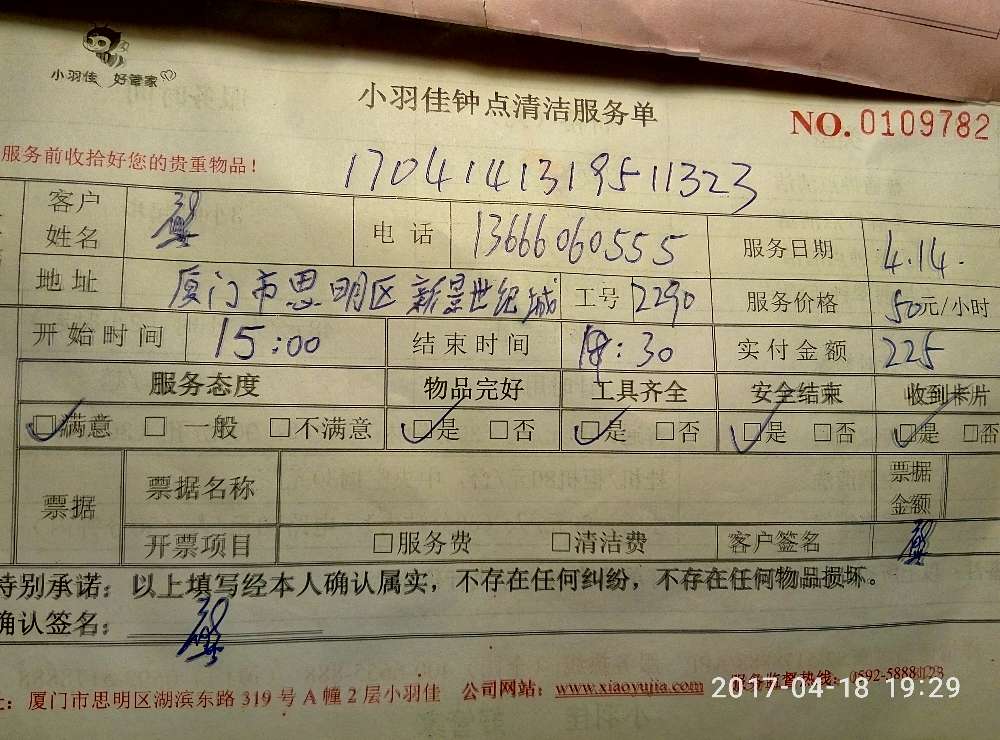 小羽佳 好管家
小羽佳钟点清洁服务单
NO. 0109782
服务前收拾好您的贵重物品！
1704141319511323
客户姓名 电话 13666060555 服务日期 4.14.
地址 厦门市思明区新景世纪城 工号 2290 服务价格 50元/小时
开始时间 15:00 结束时间 19:30 实付金额 225
服务态度 物品完好 工具齐全 安全结束 收到卡片
☑满意 □一般 □不满意 ☑是 □否 ☑是 □否 ☑是 □否 ☑是 □否
票据 票据名称 票据金额
开票项目 □服务费 □清洁费 客户签名
特别承诺：以上填写经本人确认属实，不存在任何纠纷，不存在任何物品损坏。
确认签名：
厦门市思明区湖滨东路319号A幢2层小羽佳 公司网站：www.xiaoyujia.com 服务监督热线：0592-5888123
2017-04-18 19:29